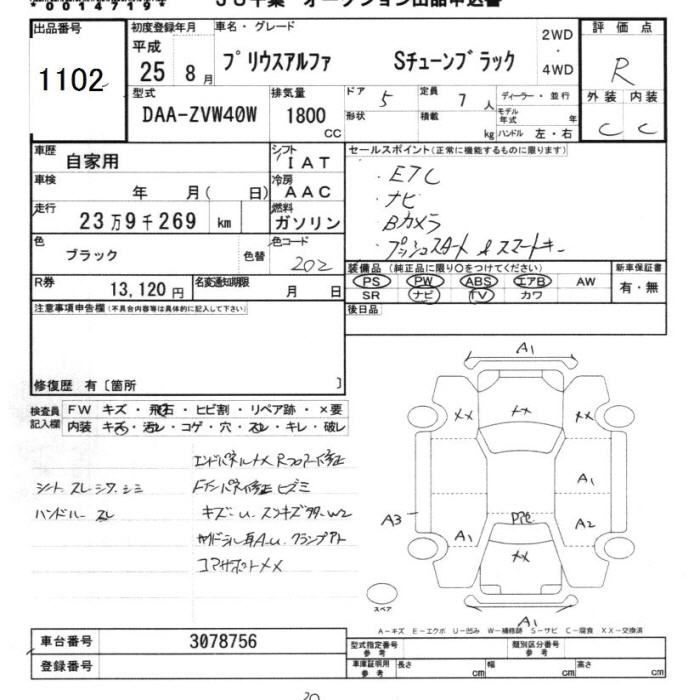 00147194
JU千葉 オークション出品申込書
出品番号 初度登録年月 車名・グレード 2WD・4WD 評価点
1102 平成 25 8月 プリウスアルファ Sチューンブラック R
型式 排気量 ドア 5 定員 7人 ディーラー・並行 外装 内装
DAA-ZVW40W 1800 CC 形状 積載 kg モデル年式 年 ハンドル 左・右 C C
車歴 自家用 シフト IAT セールスポイント(正常に機能するものに限ります)
車検 年 月( 日) 冷房 AAC ・ETC
走行 23万9千269 km 燃料 ガソリン ・ナビ
・Bカメラ
色 ブラック 色替 色コード 202 ・プッシュスタート & スマートキー
R券 13,120円 名変通知期限 月 日 装備品(純正品に限り○をつけてください) 新車保証書
PS PW ABS エアB AW 有・無
SR ナビ TV カワ
注意事項申告欄(不具合内容等は具体的に記入して下さい) 後日品
修復歴 有〔箇所 〕
検査員記入欄 FW キズ・飛石・ヒビ割・リペア跡・×要
内装 キズ・汚レ・コゲ・穴・スレ・キレ・破レ
エンドパネルナメ Rフロアー修正
シート スレ シワ シミ
ハンドル スレ キズ-U.
A1
XX XX XX
A1
A3 A2
A1
XX
スペア A1
A-キズ E-エクボ U-凹み W-補修跡 S-サビ C-腐食 XX-交換済
車台番号 3078756 型式指定番号 参考 類別区分番号 参考
登録番号 車庫証明用 参考 長さ cm 幅 cm 高さ cm
20